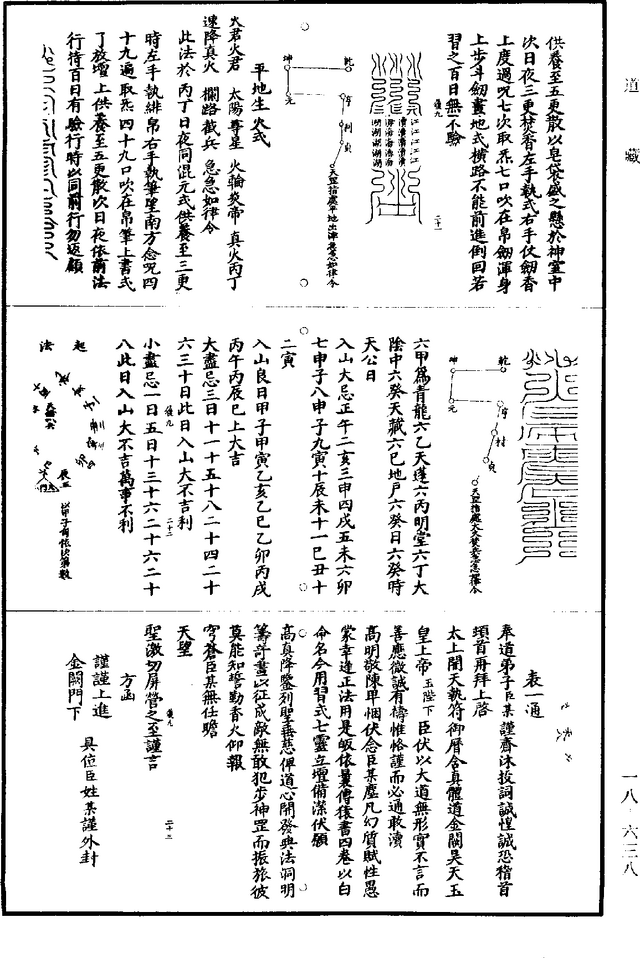 道藏
供養至五更散以皂袋盛之懸於神室中
次日夜三更焚香左手執式右手仗劒香
上度過呪七次取炁七口吹在帛劒渾身
上步斗劒畫地式橫路不能前進倒回若
習之百日無不驗
後九
二十一
江江江江
瀆瀆瀆瀆
海海海海
湖湖湖湖
乾
元
亨
利
貞
坤
天罡指處平地出渾急急如律令
平地生火式
火君火君 太陽尊星 火輪炎帝 真火丙丁
速降真火 欄路截兵 急急如律令
此法於丙丁日夜同混元式供養至三更
時左手執緋帛右手執筆望南方念呪四
十九遍取炁四十九口吹在帛筆上書式
了放壇上供養至五更散次日夜依前法
行持百日有驗行時以同前行勿返顧
乾
元
亨
利
貞
坤
天罡指處大火焚燒急急如律令
六甲為青龍六乙天蓬六丙明堂六丁大
陰中六癸天藏六巳地戶六癸日六癸時
天公日
入山大忌正午二亥三申四戌五未六卯
七申子八申子九寅十辰未十一巳丑十
二寅
入山良日甲子甲寅乙亥乙巳乙卯丙戌
丙午丙辰巳上大吉
大盡忌三日十一十五十八二十四二十
六三十日此日入山大不吉利
後九
二十二
小盡忌一日五日十三十六二十六二十
八此日入山大不吉萬事不利
起法
以甲子旬依次第數
表一通
奉道弟子臣某謹齋沐投詞誠惶誠恐稽首
頓首再拜上啓
太上開天執符御曆含真體道金闕昊天玉
皇上帝 玉陛下 臣伏以大道無形實不言而
善應微誠有禱惟恪謹而必通敢瀆
高明敬陳卑悃伏念臣某塵凡幻質賦性愚
蒙幸逢正法用是皈依曩傳猿書四卷以白
命名今用習式七靈立壇備潔伏願
高真降鑒列聖垂慈俾道心開發與法洞明
籌計畫以征成敵無敢犯步神罡而振旅彼
莫能知誓勤香火仰報
穹蒼臣某無任瞻
天望
後九
二十三
聖激切屏營之至謹言
方函
謹謹上進
金闕門下
具位臣姓某謹外封
一八·六三八